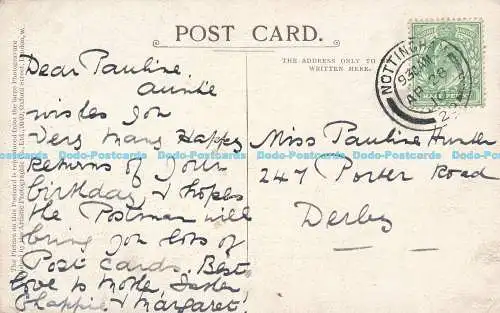 POST CARD.
THE ADDRESS ONLY TO
WRITTEN HERE.
Dear Pauline,
Auntie
wishes you
Very Many Happy
Returns of your
birthday & hopes
the Postman will
bring you lots of
Post cards. Best
love to Mother, 
Chappie & Margaret.
Miss Pauline Hunter
247 Porter Road
Derby
NOTTINGHAM
930AM
AP 28
The Picture on this Postcard is reproduced from the large Photogravure
Published by the Artistic Photographic Co., Ltd., Oxford Street, London, W.
Dodo-Postcards Dodo-Postcards Dodo-Postcards Dodo-Postcards Dodo-Postcards Dodo-Postcards